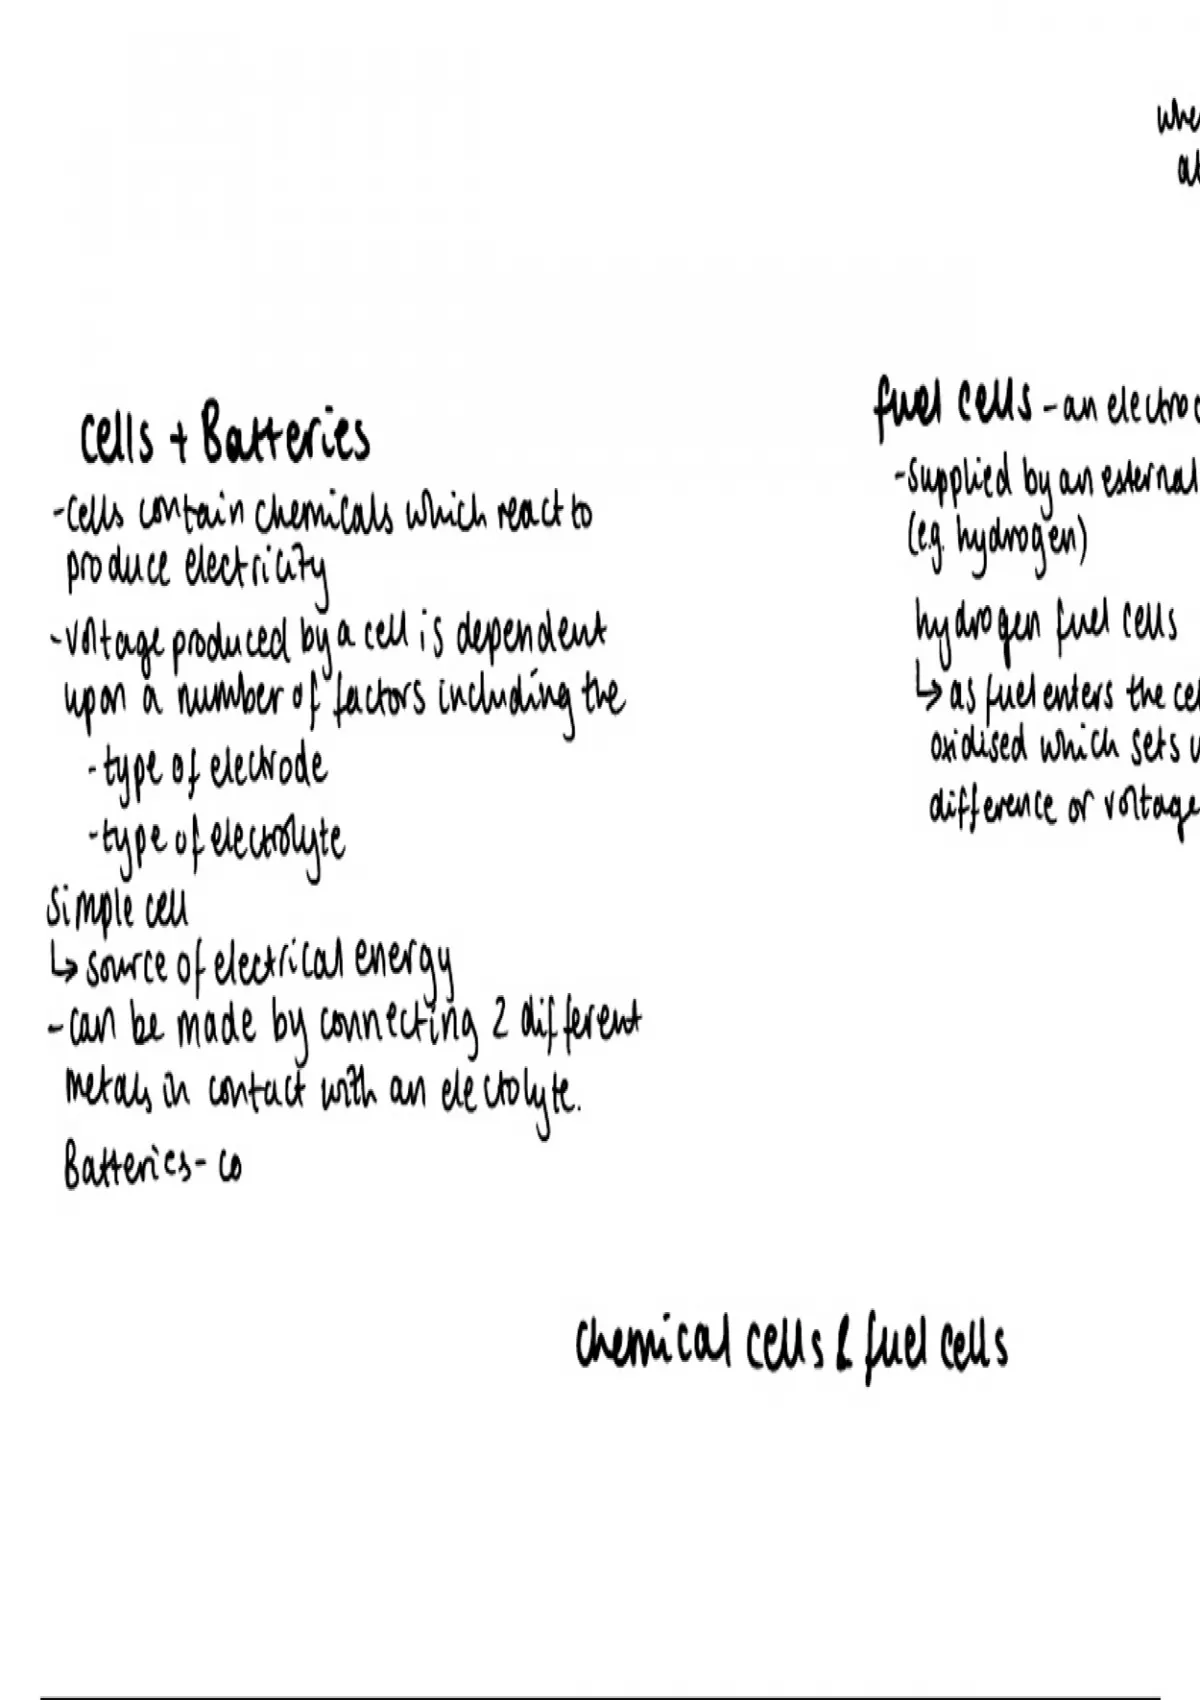 Cells + Batteries
-Cells contain chemicals which react to
produce electricity
-Voltage produced by a cell is dependent
upon a number of factors including the
-type of electrode
-type of electrolyte
Simple cell
↳ source of electrical energy
-can be made by connecting 2 different
metals in contact with an electolyte.
Batteries- co
fuel cells -an electroc
-supplied by an esternal
(e.g. hydrogen)
hydrogen fuel cells
↳ as fuel enters the cel
oxidised which sets u
difference or voltage
Chemical cells & fuel cells